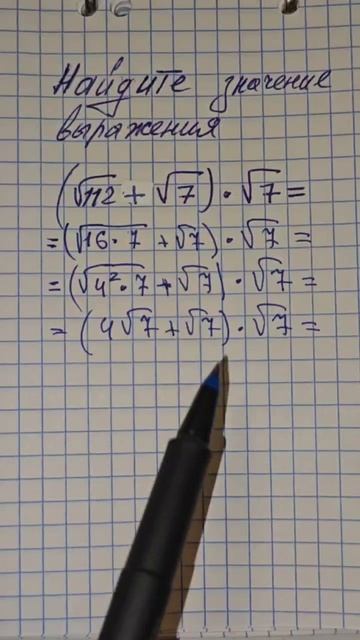 Найдите значение
выражения
(√112 + √7) · √7 =
= (√16 · 7 + √7) · √7 =
= (√4² · 7 + √7) · √7 =
= (4√7 + √7) · √7 =